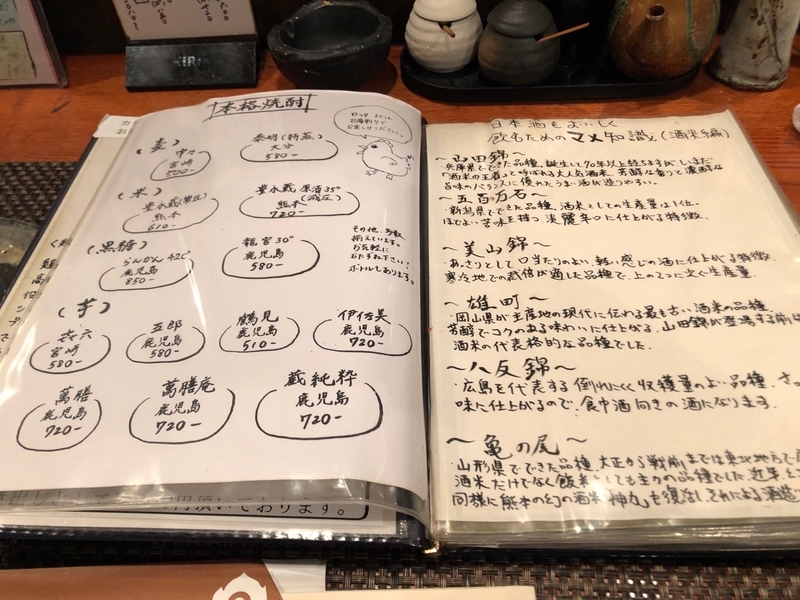 本格焼酎
(麦)
中々
宮崎
500-
泰明(特蒸)
大分
580-
(米)
豊永蔵(常圧)
熊本
610-
豊永蔵 原酒35°
(減圧)
熊本
720-
(黒糖)
らんかん 42°
鹿児島
850-
龍宮30°
鹿児島
580-
その他、多数
揃えています。
お気軽に
おたずね下さい!
ボトルもあります。
(芋)
㐂六
宮崎
580-
五郎
鹿児島
580-
鶴見
鹿児島
510-
伊佐美
鹿児島
720-
萬膳
鹿児島
720-
萬膳庵
鹿児島
720-
蔵純粋
鹿児島
720-
頂いております。
日本酒をおいしく
飲むためのマメ知識(酒米編)
〜山田錦〜
兵庫県でできた品種。誕生して70年以上経ちますが、いまだ
「酒米の王者」と呼ばれる大人気酒米。芳醇な香りと濃醇な
旨味のバランスに優れたうまい酒が造りやすい。
〜五百万石〜
・新潟県でできた品種。酒米としての生産量は1位。
ほどよい苦味を持つ、淡麗辛口に仕上がる特徴。
〜美山錦〜
・あっさりとして口当たりのよい、軽い感じの酒に仕上がる特徴。
寒冷地での栽培が適した品種で、上の2つに次ぐ生産量。
〜雄町〜
・岡山県が主産地の現代に伝わる最も古い酒米の品種。
芳醇でコクのある味わいに仕上がる。山田錦が登場する前は
酒米の代表格的な品種でした。
〜八反錦〜
・広島を代表する倒れにくく収穫量のよい品種。さっ
味に仕上がるので、食中酒向きの酒になります。
〜亀の尾〜
・山形県でできた品種。大正から戦前までは東北地方で
酒米だけでなく飯米としても主力の品種でした。近年、
同様に熊本の幻の酒米「神力」も復活し、それによる酒造
KIRIN